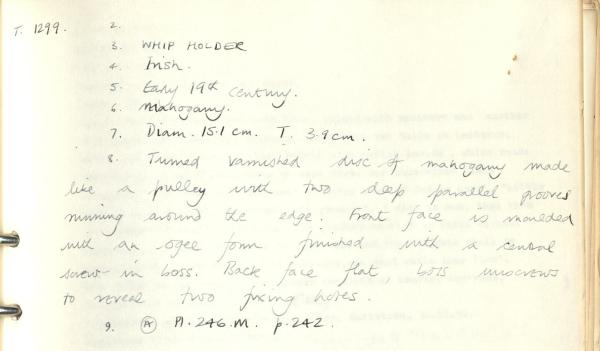 T. 1299.
2.
3. WHIP HOLDER
4. Irish.
5. Early 19th century.
6. Mahogany.
7. Diam. 15.1 cm. T. 3.9 cm.
8. Turned varnished disc of mahogany made
like a pulley with two deep parallel grooves
running around the edge. Front face is moulded
with an ogee form finished with a central
screw-in boss. Back face flat, boss unscrews
to reveal two fixing holes.
9. (A) Pl. 246.M. p.242.